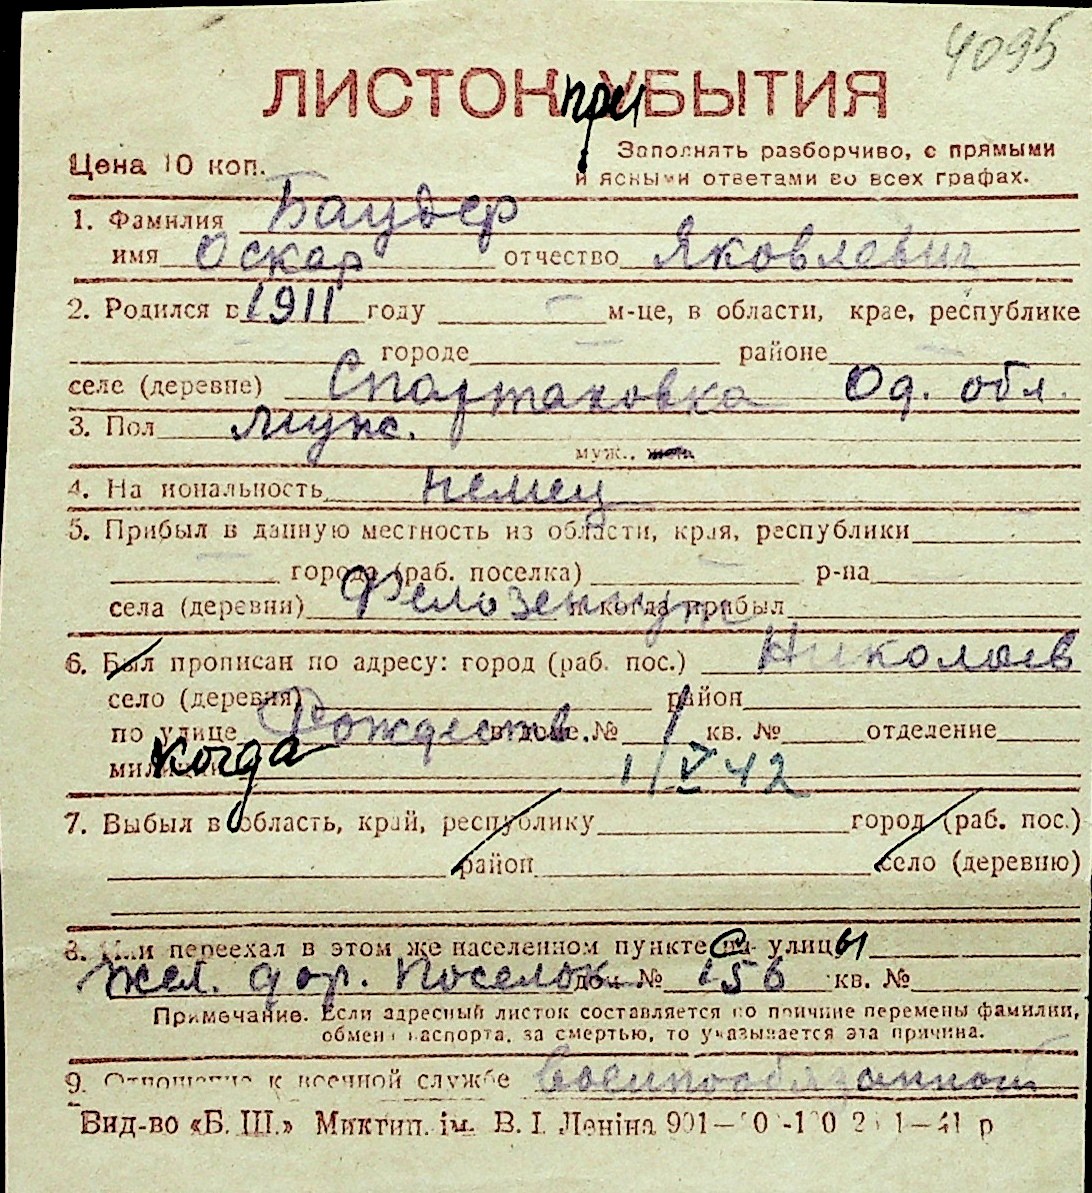 4095
ЛИСТОК при УБЫТИЯ
Цена 10 коп.
Заполнять разборчиво, с прямыми
и ясными ответами во всех графах.
1. Фамилия Баудер
имя Оскар отчество Яковлевич
2. Родился в 1911 году — м-це, в области, крае, республике
— городе — районе —
селе (деревне) Спартаковка Од. обл.
3. Пол мужс.
муж., жен.
4. Национальность немец
5. Прибыл в данную местность из области, края, республики
— города (раб. поселка) — р-на
села (деревни) и когда прибыл
6. Был прописан по адресу: город (раб. пос.) Николаев
село (деревня) район
по улице Рождеств. в доме № 1 кв. № отделение
милиции когда 1/V 42
7. Выбыл в область, край, республику город (раб. пос.)
район село (деревню)
8. Или переехал в этом же населенном пункте с на улицы
Жел. дор. поселок дом № 156 кв. №
Примечание. Если адресный листок составляется по причине перемены фамилии,
обмена паспорта, за смертью, то указывается эта причина.
9. Отношение к военной службе Военнообязанный
Вид-во «Б. Ш.» Миктип. ім. В. І. Леніна